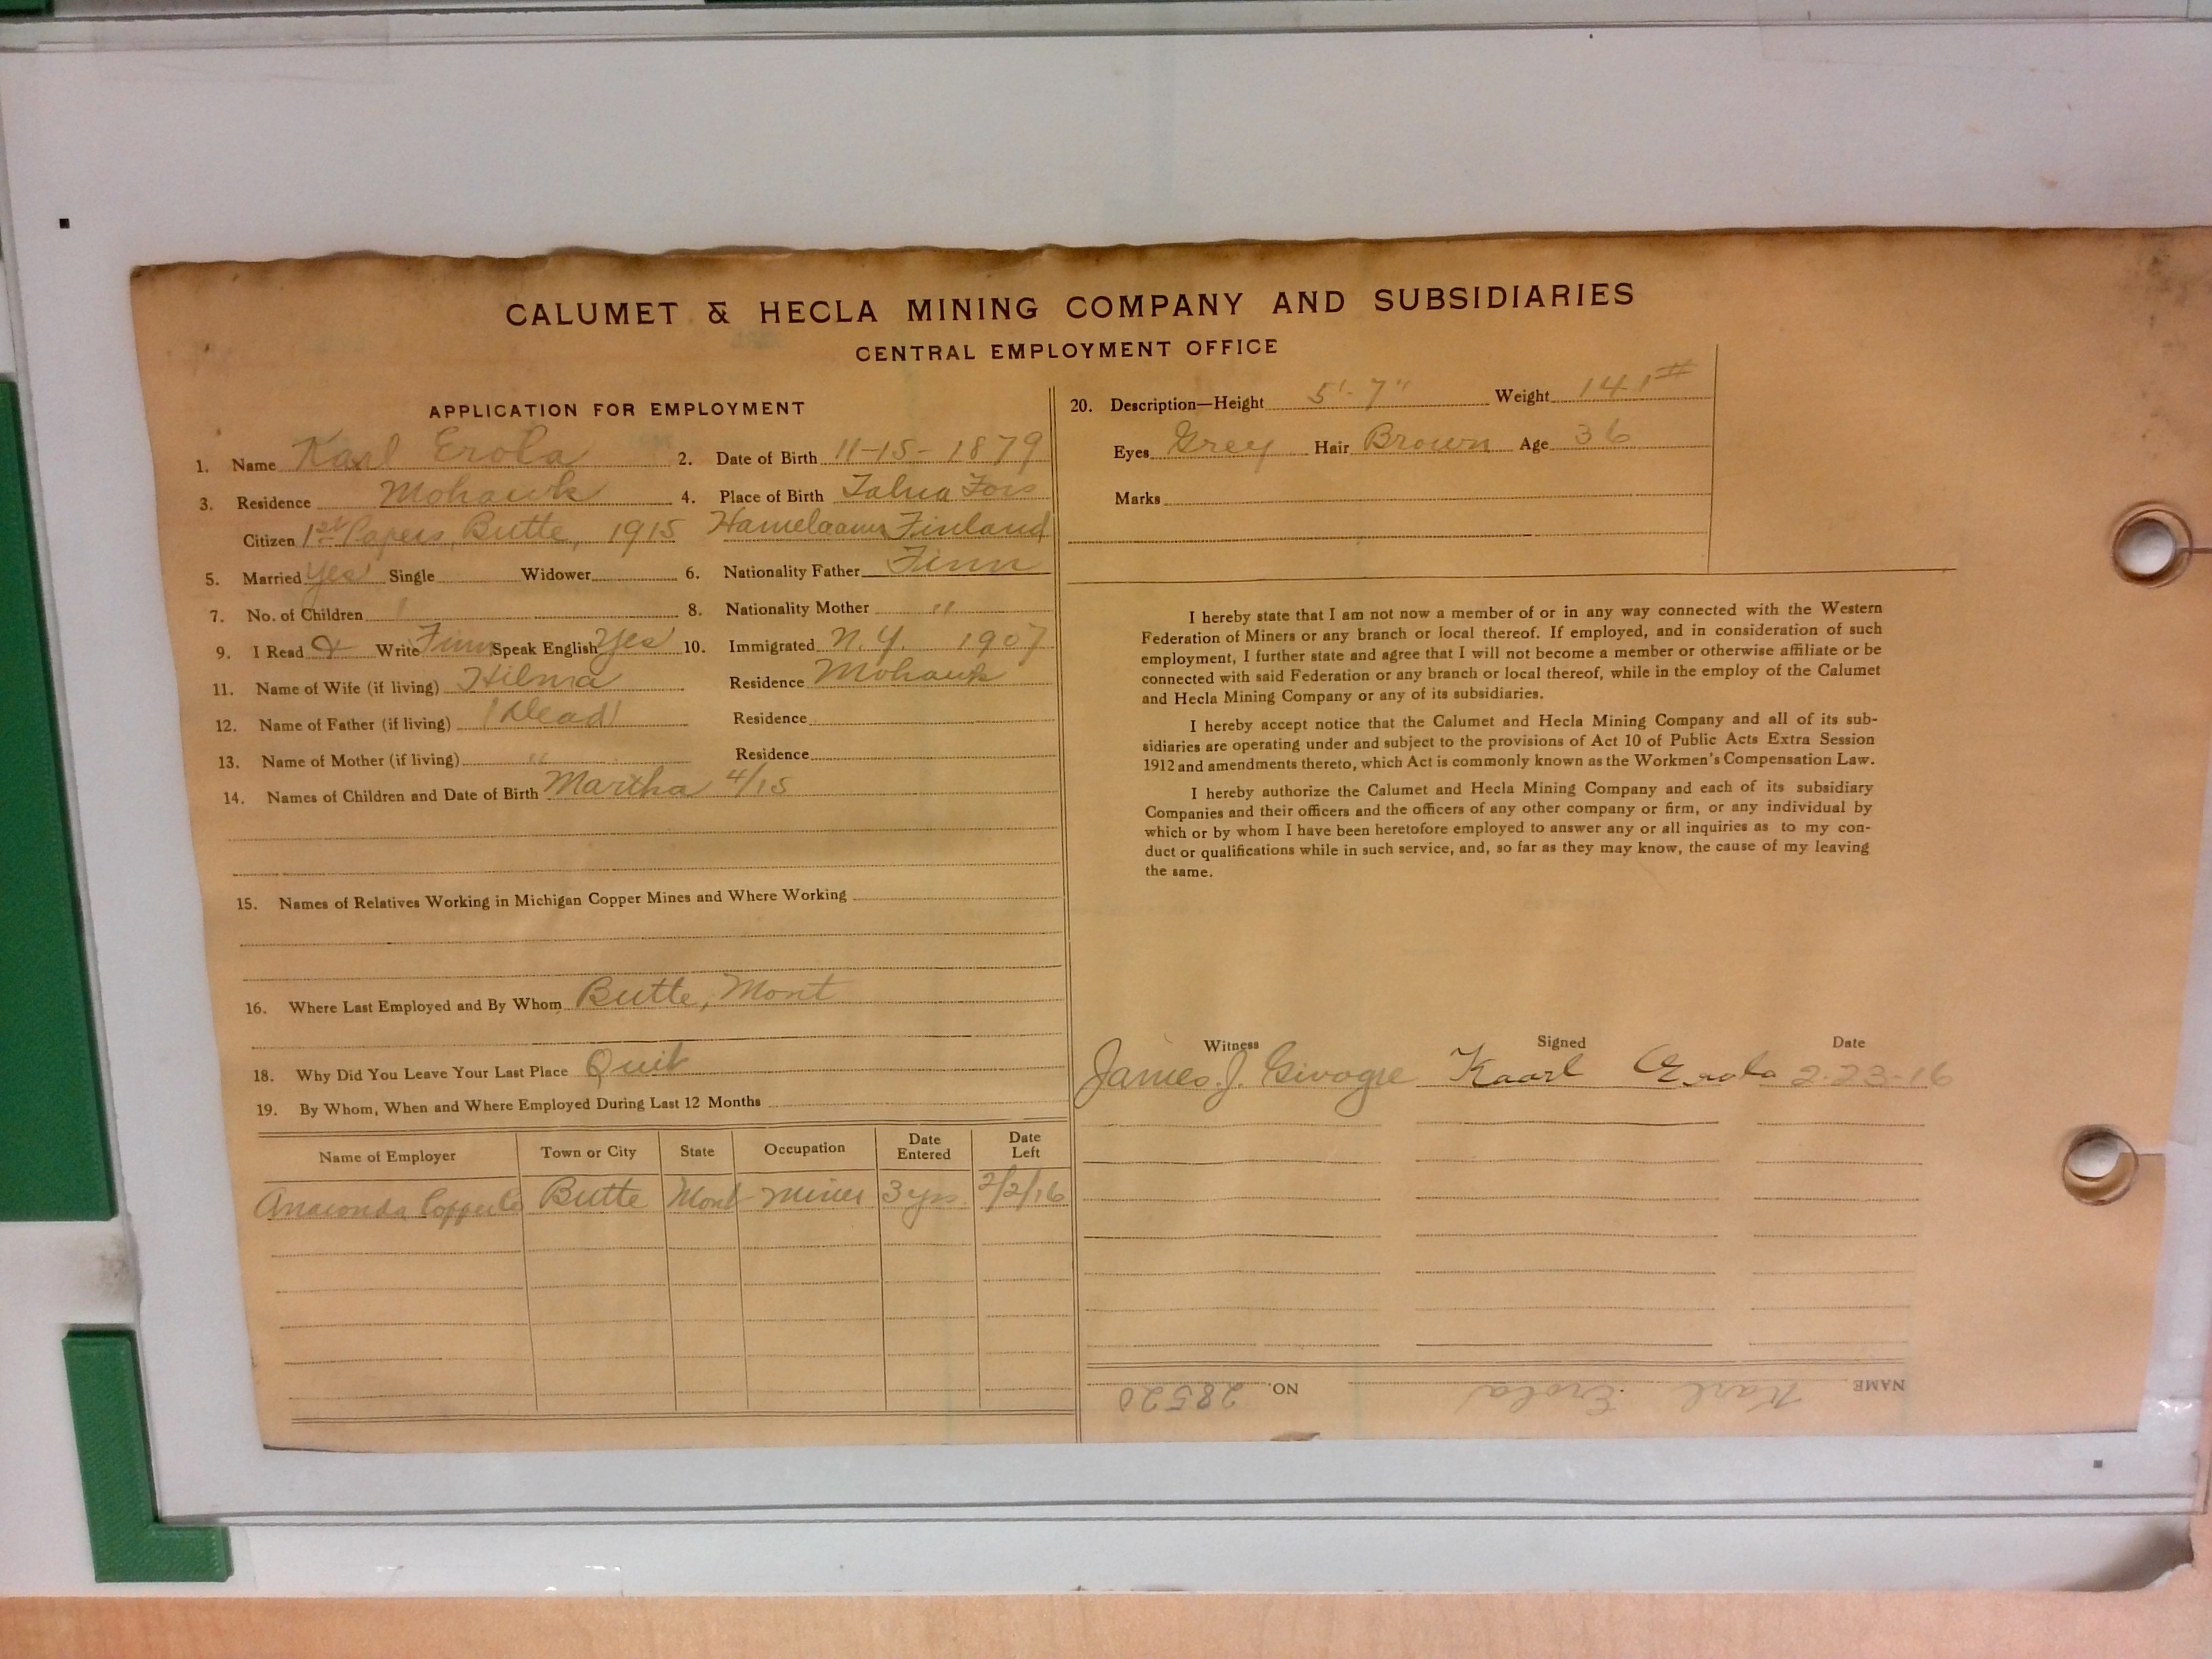 CALUMET & HECLA MINING COMPANY AND SUBSIDIARIES
CENTRAL EMPLOYMENT OFFICE
APPLICATION FOR EMPLOYMENT
1. Name Karl Erola 2. Date of Birth 11-15-1879
3. Residence Mohawk 4. Place of Birth
Citizen 1st Papers, Butte, 1915 Finland
5. Married Yes Single Widower 6. Nationality Father Finn
7. No. of Children 1 8. Nationality Mother "
9. I Read & Write Finn Speak English Yes 10. Immigrated N.Y. 1907
11. Name of Wife (if living) Hilma Residence Mohawk
12. Name of Father (if living) (Dead) Residence
13. Name of Mother (if living) " Residence
14. Names of Children and Date of Birth Martha 4/15
15. Names of Relatives Working in Michigan Copper Mines and Where Working
16. Where Last Employed and By Whom Butte, Mont
18. Why Did You Leave Your Last Place Quit
19. By Whom, When and Where Employed During Last 12 Months
Name of Employer Town or City State Occupation Date Entered Date Left
Anaconda Copper Co Butte Mont Miner 3 yrs. 2/2/16
20. Description—Height 5'-7" Weight 141#
Eyes Grey Hair Brown Age 36
Marks
I hereby state that I am not now a member of or in any way connected with the Western
Federation of Miners or any branch or local thereof. If employed, and in consideration of such
employment, I further state and agree that I will not become a member or otherwise affiliate or be
connected with said Federation or any branch or local thereof, while in the employ of the Calumet
and Hecla Mining Company or any of its subsidiaries.
I hereby accept notice that the Calumet and Hecla Mining Company and all of its sub-
sidiaries are operating under and subject to the provisions of Act 10 of Public Acts Extra Session
1912 and amendments thereto, which Act is commonly known as the Workmen's Compensation Law.
I hereby authorize the Calumet and Hecla Mining Company and each of its subsidiary
Companies and their officers and the officers of any other company or firm, or any individual by
which or by whom I have been heretofore employed to answer any or all inquiries as to my con-
duct or qualifications while in such service, and, so far as they may know, the cause of my leaving
the same.
Witness Signed Date
James J. Kaarl Erola 2-23-16
NAME Karl Erola NO. 28520